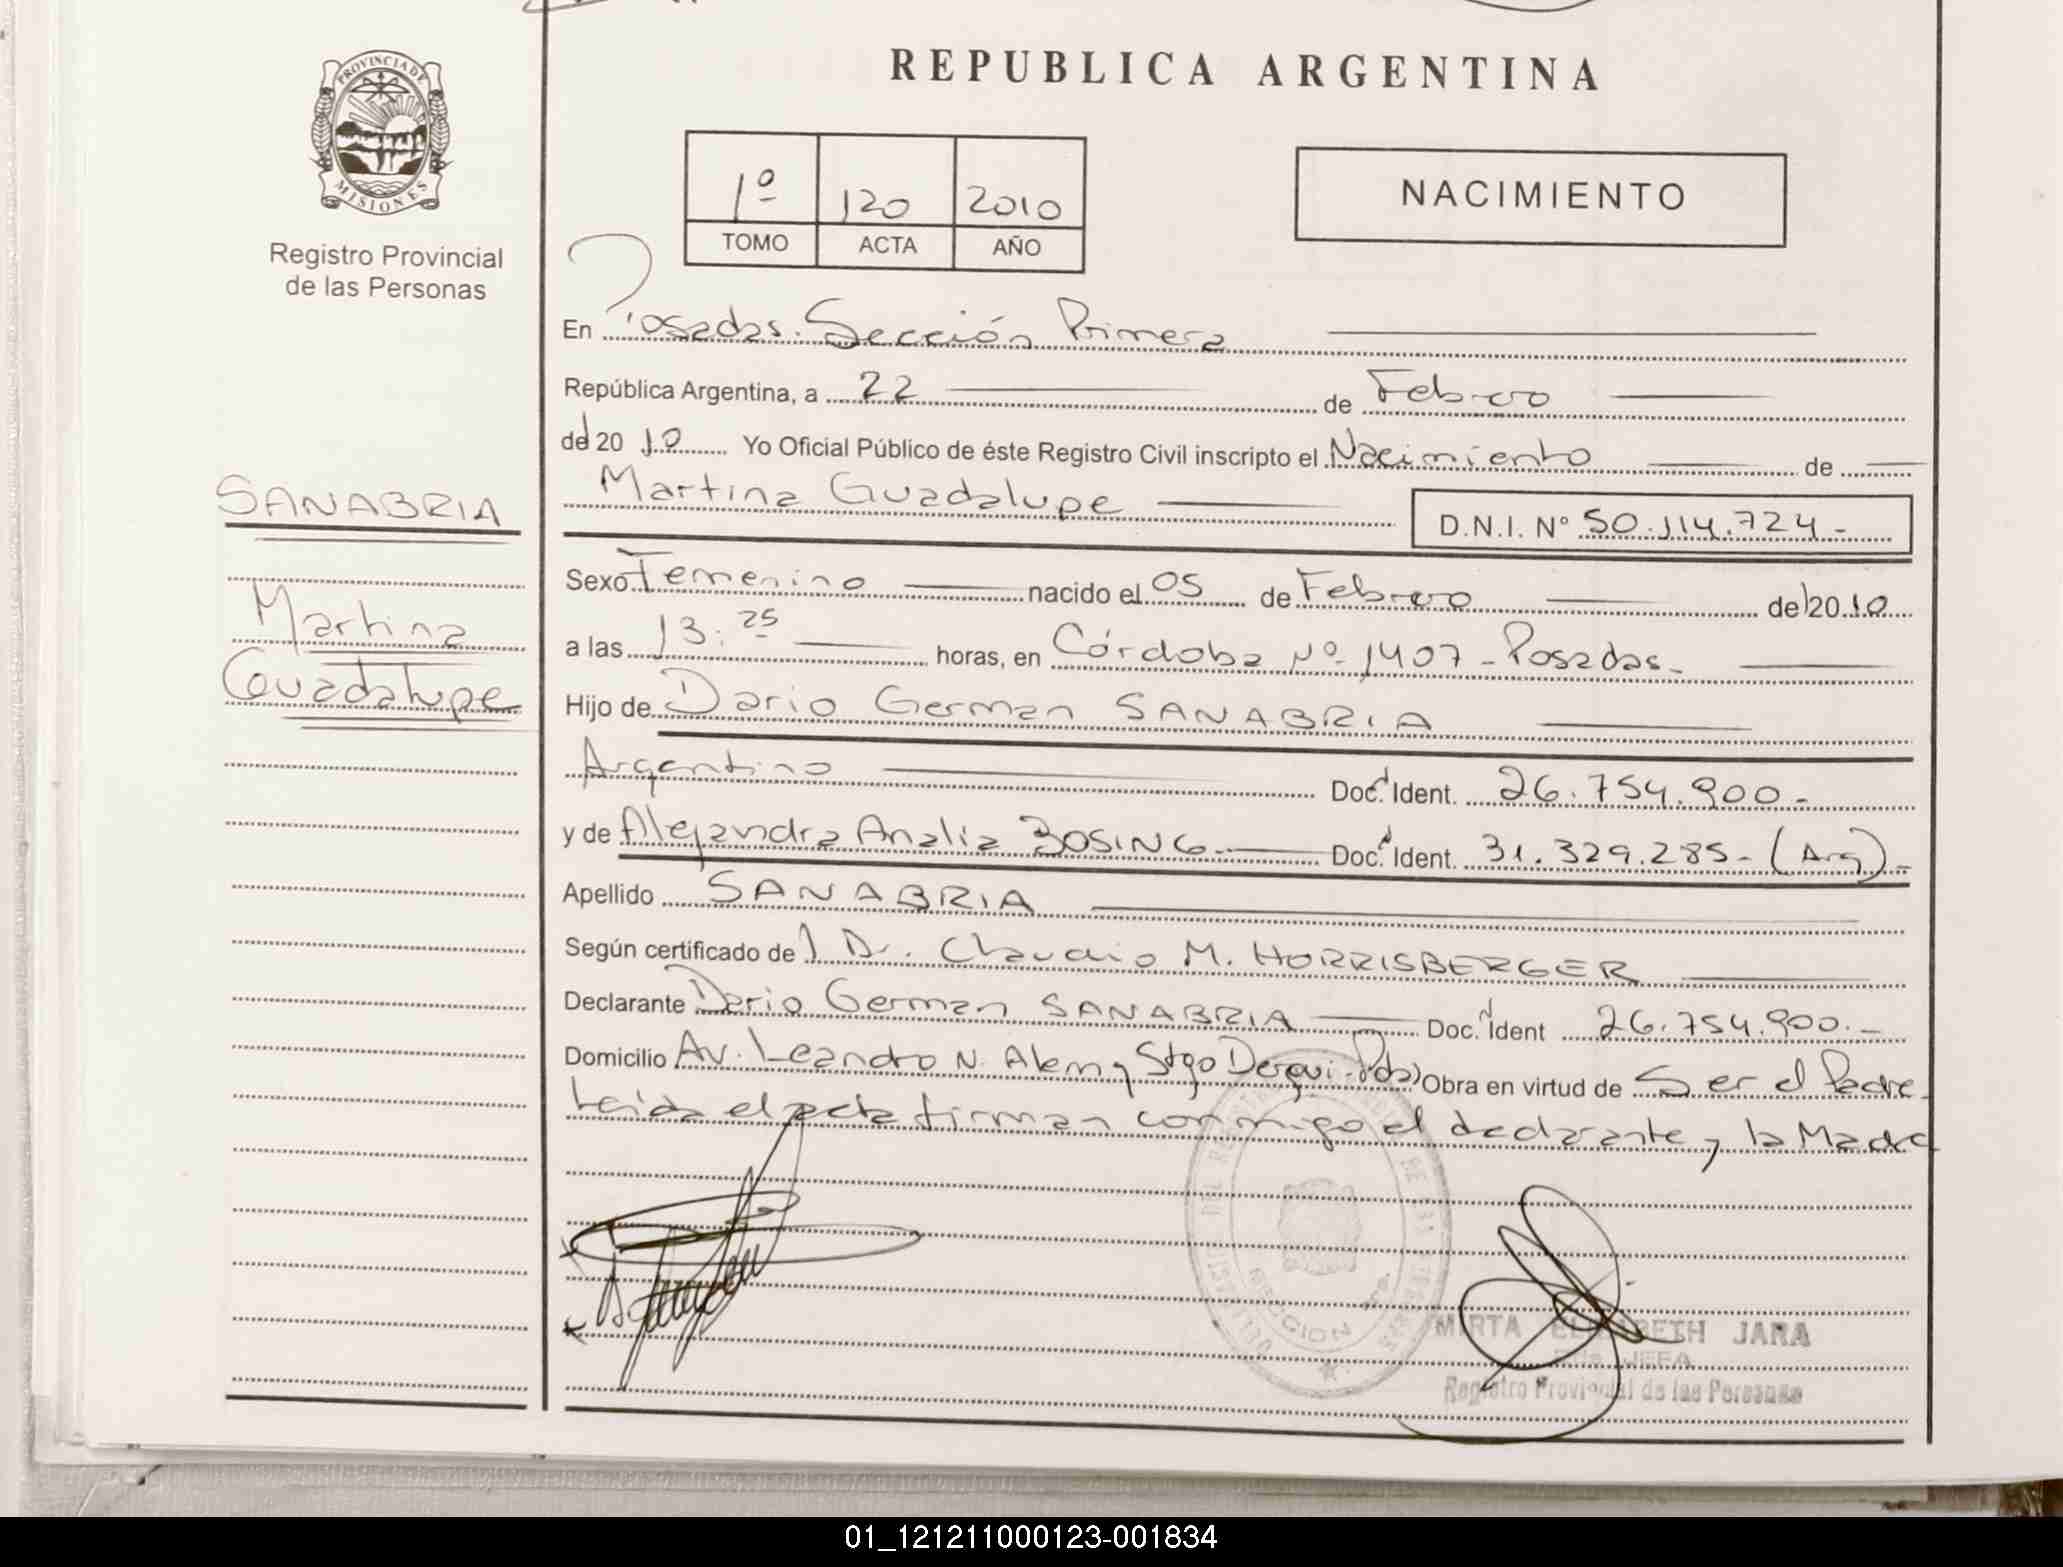 REPUBLICA ARGENTINA
PROVINCIA DE
MISIONES
Registro Provincial
de las Personas
1º 120 2010
TOMO ACTA AÑO
NACIMIENTO
En Posadas. Sección Primera
República Argentina, a 22 de Febrero
del 20 10 Yo Oficial Público de éste Registro Civil inscripto el Nacimiento de
Martina Guadalupe
D.N.I. Nº 50.114.724-
SANABRIA
Martina
Guadalupe
Sexo Femenino nacido el 05 de Febrero del 20 10
a las 13:25 horas, en Córdoba Nº 1407 - Posadas-
Hijo de Dario German SANABRIA
Argentino Doc. Ident. 26.754.900-
y de Alejandra Analia BOSING Doc. Ident. 31.329.285- (Arg)-
Apellido SANABRIA
Según certificado del Dr. Claudio M. HORRISBERGER
Declarante Dario German SANABRIA Doc. Ident 26.754.900.-
Domicilio Av. Leandro N. Alem y Stgo Derqui-Pdas) Obra en virtud de Ser el Padre-
Leida el acta firman conmigo el declarante y la Madre
SECCION
MIRTA ELIZABETH JARA
JEFA
Registro Provincial de las Personas
01_121211000123-001834